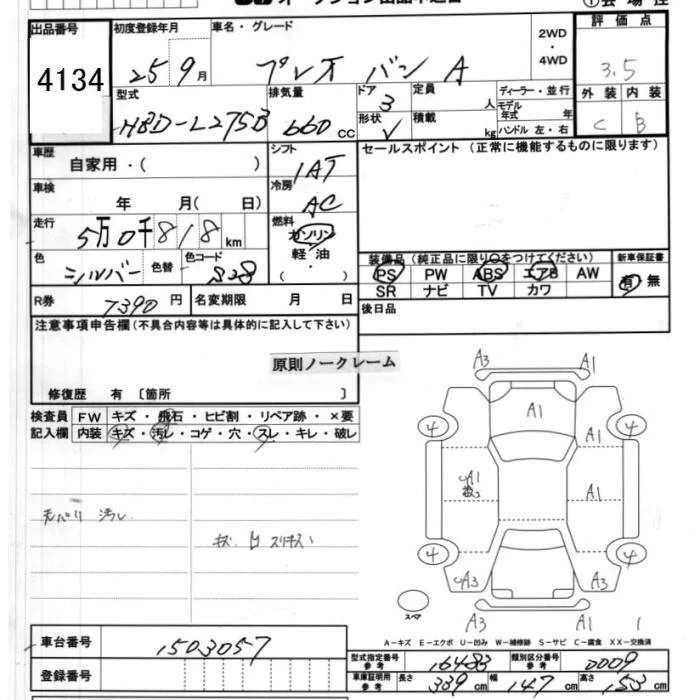 出品番号 初度登録年月 車名・グレード 2WD・4WD 評価点
4134 25 9月 プレオ バン A 3.5
型式 排気量 ドア 定員 ディーラー・並行 外装 内装
HBD-L275B 660 cc 3 人 モデル年式 年 C B
形状 V 積載 kg ハンドル 左・右
車歴 シフト セールスポイント (正常に機能するものに限ります)
自家用・( ) 1AT
車検 冷房
年 月( 日) AC
走行 燃料
5万0千818km ガソリン
色 色替 色コード 軽油 装備品(純正品に限り○をつけてください) 新車保証書
シルバー S28 (・) PS PW ABS エアB AW 有 無
SR ナビ TV カワ
R券 7390円 名変期限 月 日 後日品
注意事項申告欄(不具合内容等は具体的に記入して下さい)
原則ノークレーム
修復歴 有 〔箇所 〕
検査員 FW キズ・飛石・ヒビ割・リペア跡・×要
記入欄 内装 キズ・汚レ・コゲ・穴・スレ・キレ・破レ
A3 A1
A1
4 4
A1 A1
A1
4 4
A3 A3
A3 A1
天バリ 汚レ
スペア
A-キズ E-エクボ U-凹み W-補修跡 S-サビ C-腐食 XX-交換済
車台番号 1503057
型式指定番号 参考 16483 類別区分番号 参考 0009
登録番号
車庫証明用 参考 長さ 339cm 幅 147cm 高さ 153cm